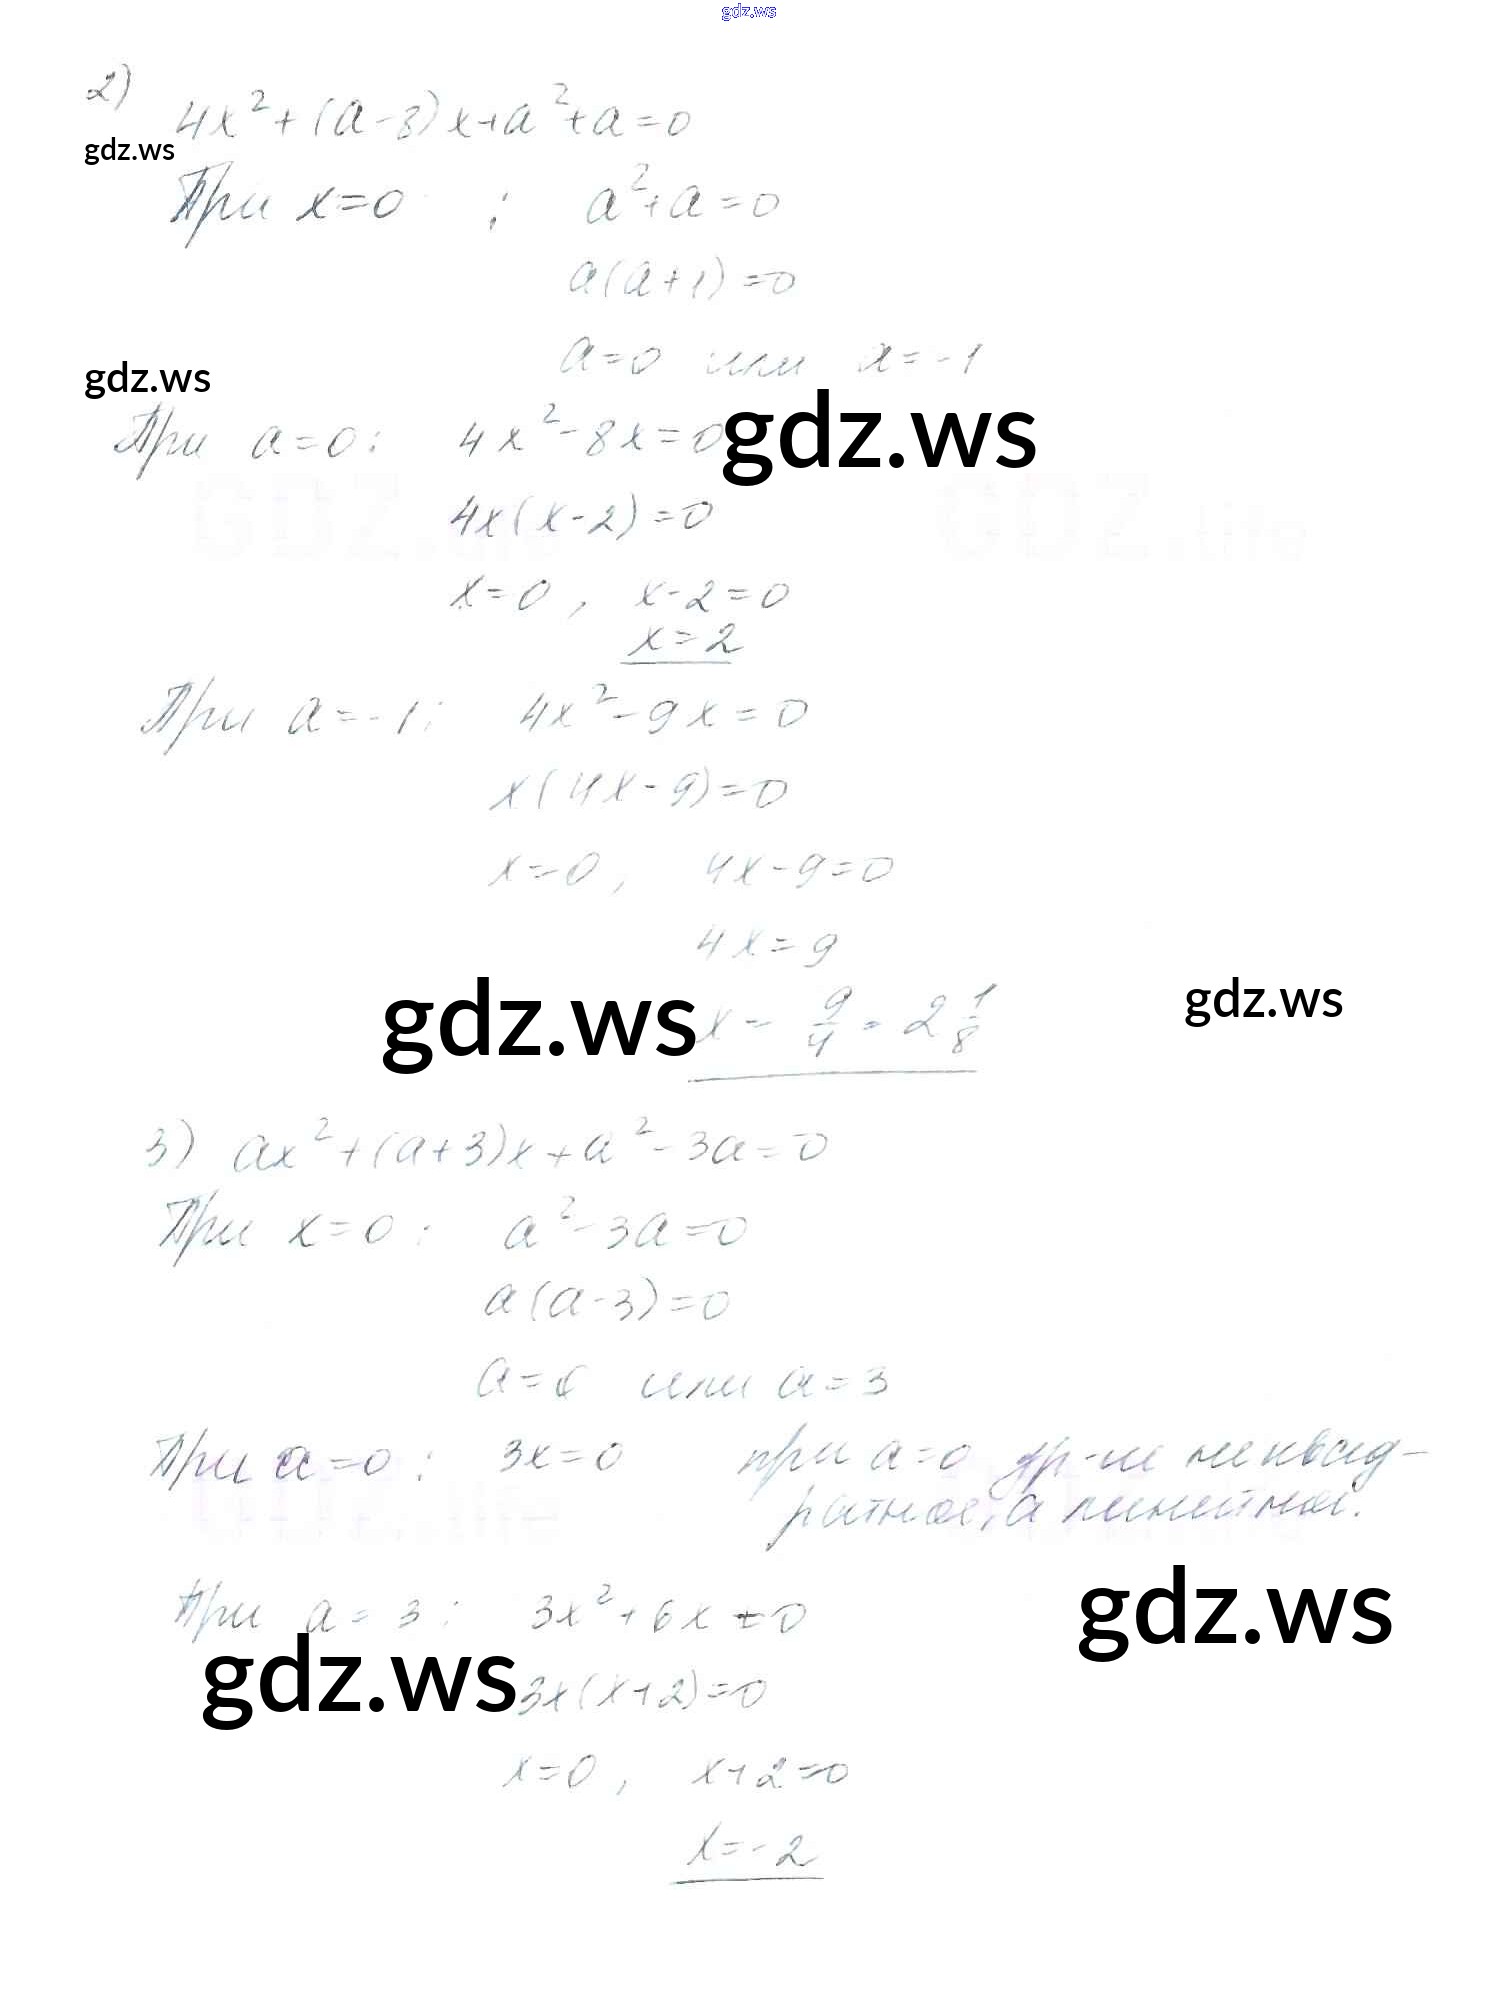 gdz.ws
2)
4x²+(a-8)x+a²+a=0
gdz.ws
При x=0 ; a²+a=0
a(a+1)=0
a=0 или a=-1
gdz.ws
При a=0: 4x²-8x=0
gdz.ws
GDZ.life GDZ.life
4x(x-2)=0
x=0, x-2=0
x=2
При a=-1: 4x²-9x=0
x(4x-9)=0
x=0, 4x-9=0
4x=9
gdz.ws
gdz.ws
x= 9/4 = 2 1/8
3) ax²+(a+3)x+a²-3a=0
При x=0: a²-3a=0
a(a-3)=0
a=0 или a=3
При a=0: 3x=0 при a=0 ур-ие не квад-
ратное, а линейное.
GDZ.life
gdz.ws
При a=3: 3x²+6x=0
gdz.ws
3x(x+2)=0
x=0, x+2=0
x=-2